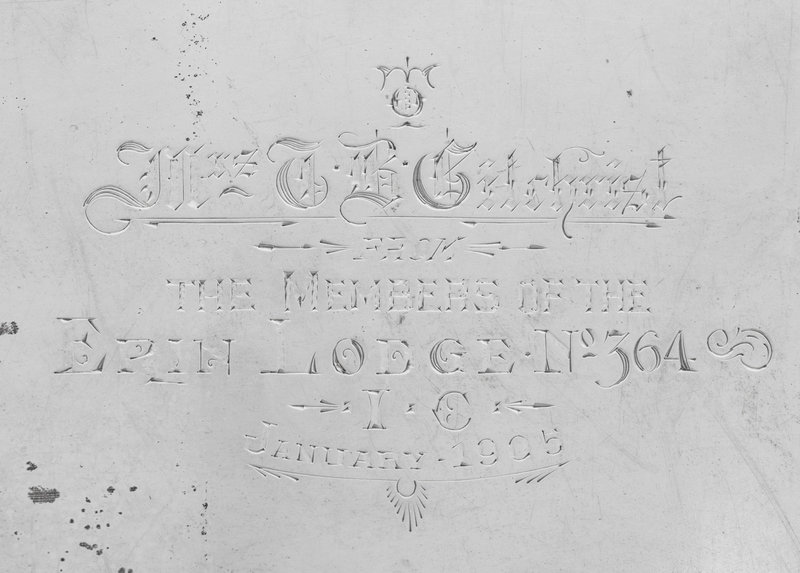 TO
Mrs T. B. Gilchrist
FROM
THE MEMBERS OF THE
ERIN LODGE · No 364
I · C
JANUARY · 1905